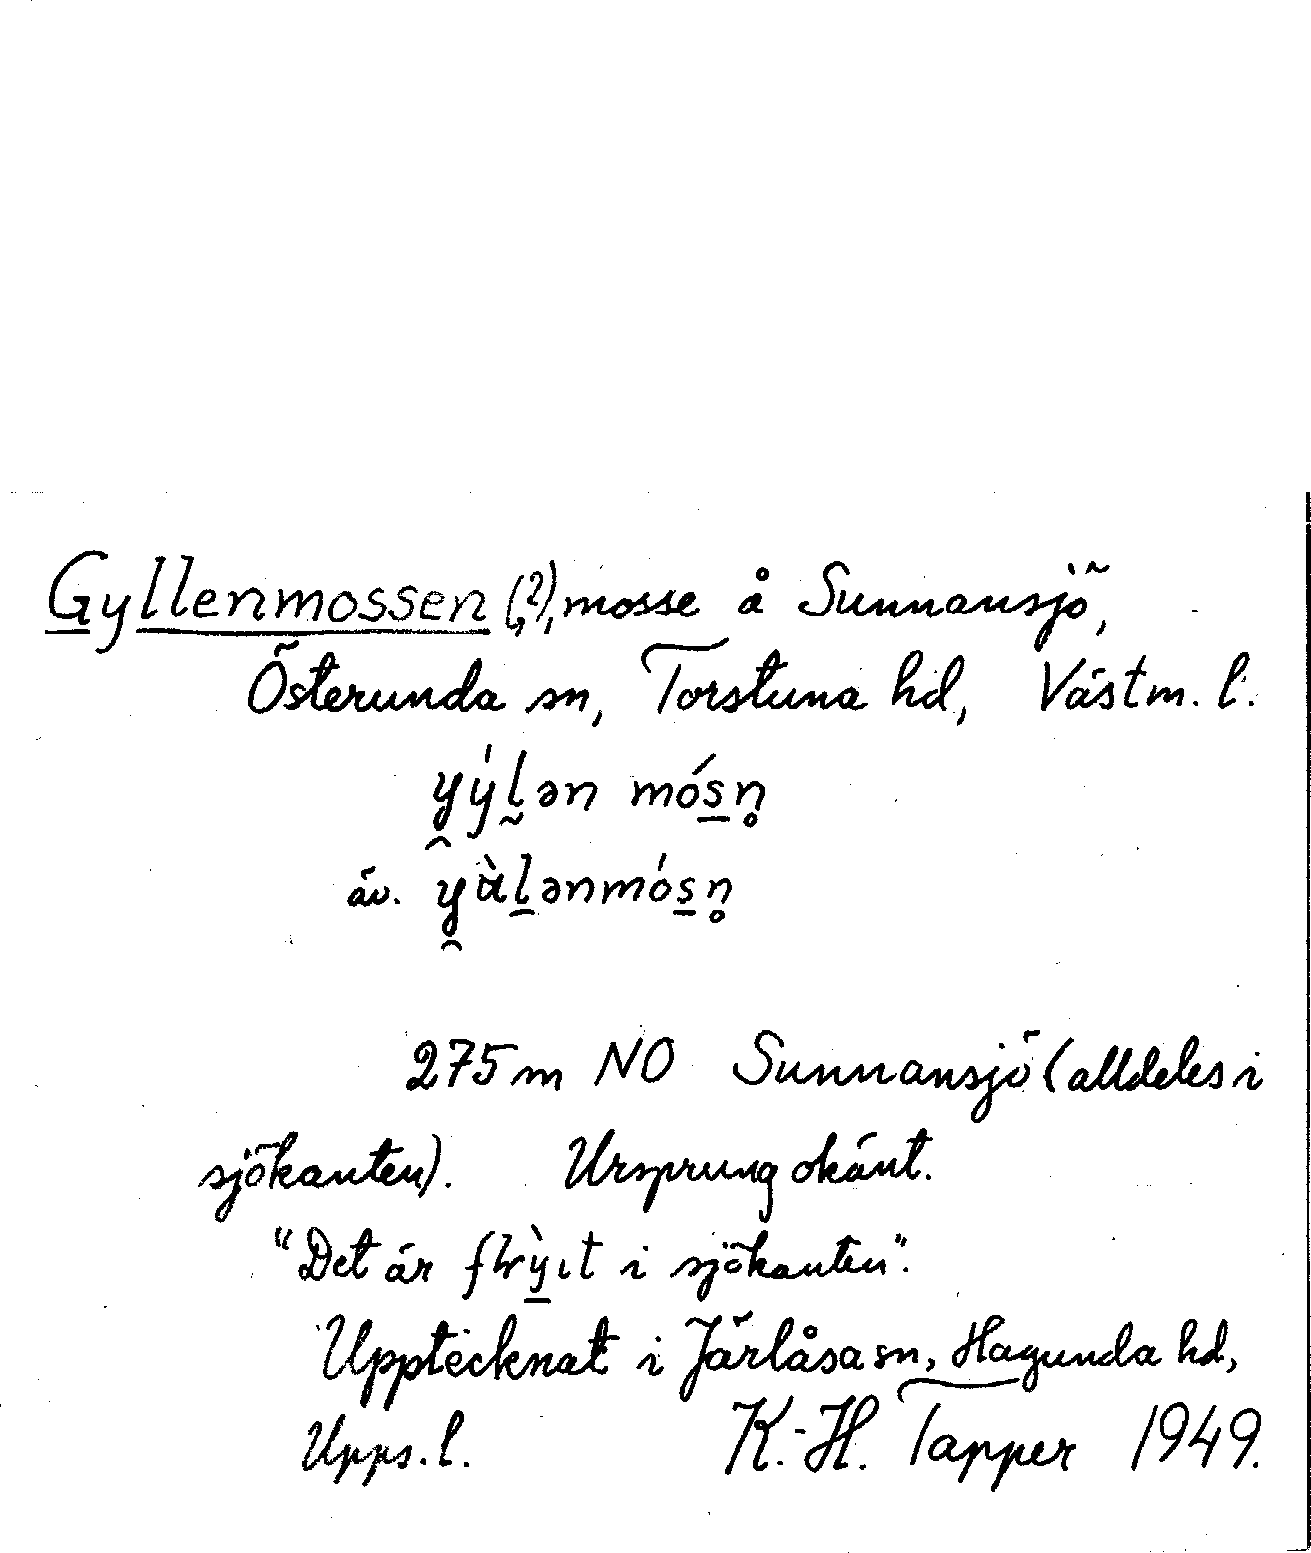 Gyllenmossen (?), mosse å Sunnansjö,
Österunda sn, Torstuna hd, Västm. l.
y̯ýl̰ən mós̲n̥
äv. y̯ɑ̀l̲ənmós̲n̥
275 m NO Sunnansjö (alldeles i
sjökanten). Ursprung okänt.
"Det är i sjökanten".
Upptecknat i Järlåsa sn, Hagunda hd,
Upps. l. K.-H. Tapper 1949.